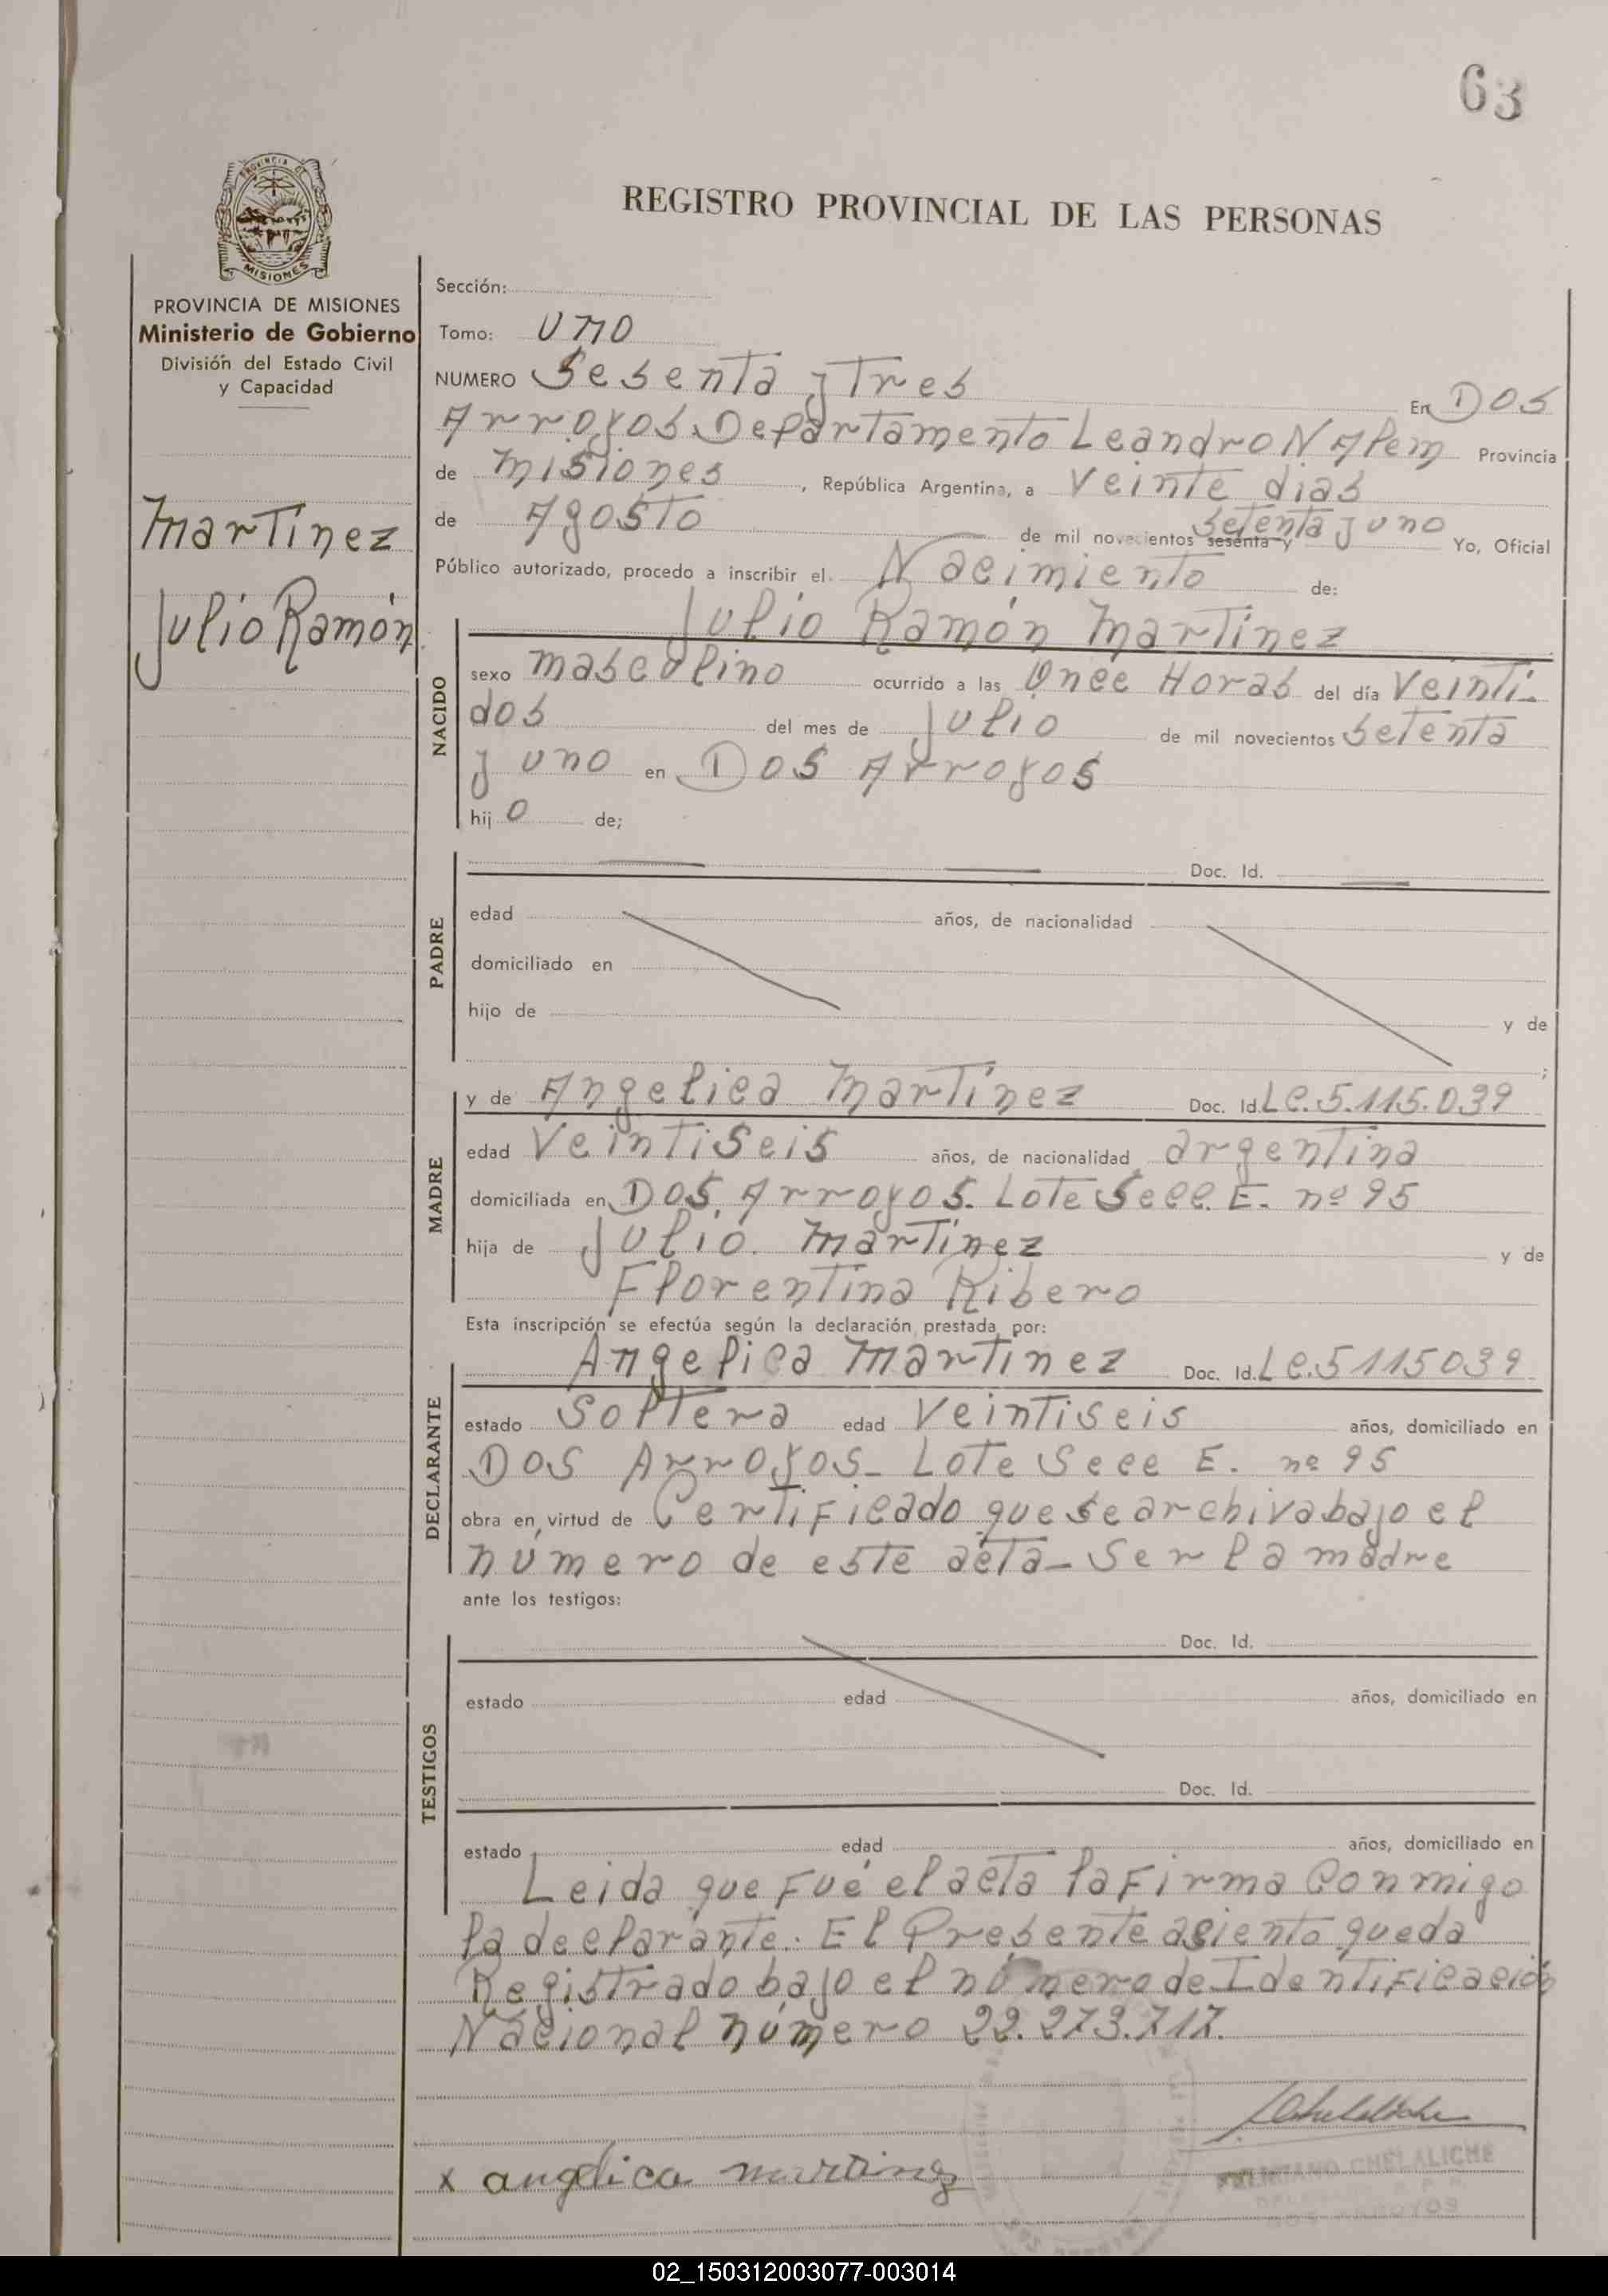 63
PROVINCIA DE
MISIONES
REGISTRO PROVINCIAL DE LAS PERSONAS
PROVINCIA DE MISIONES
Ministerio de Gobierno
División del Estado Civil
y Capacidad
Martínez
Julio Ramón
Sección:
Tomo: Uno
NUMERO Sesenta y Tres En Dos
Arroyos Departamento Leandro N Alem Provincia
de Misiones, República Argentina, a Veinte dias
de Agosto de mil novecientos sesenta y setenta y uno Yo, Oficial
Público autorizado, procedo a inscribir el Nacimiento de:
Julio Ramón Martínez
NACIDO
sexo masculino ocurrido a las Once Horas del día Veinti-
dos del mes de Julio de mil novecientos Setenta
y uno en Dos Arroyos
hijo de;
PADRE
Doc. Id.
edad años, de nacionalidad
domiciliado en
hijo de y de
;
MADRE
y de Angelica Martínez Doc. Id. LC. 5.115.039
edad Veintiseis años, de nacionalidad argentina
domiciliada en Dos Arroyos. Lote Secc. E. nº 95
hija de Julio. Martínez y de
Florentina Ribero
Esta inscripción se efectúa según la declaración prestada por:
DECLARANTE
Angelica Martinez Doc. Id. LC. 5115039
estado Soltera edad Veintiseis años, domiciliado en
Dos Arroyos- Lote Secc E. nº 95
obra en virtud de Certificado que se archiva bajo el
número de este acta- Ser la madre
ante los testigos:
TESTIGOS
Doc. Id.
estado edad años, domiciliado en
Doc. Id.
estado edad años, domiciliado en
Leida que fué el acta la firma Conmigo
la declarante. El Presente asiento queda
Registrado bajo el número de Identificación
Nacional número 22.273.717.
x angelica martinez
CHELALICHE
DOS ARROYOS
02_150312003077-003014